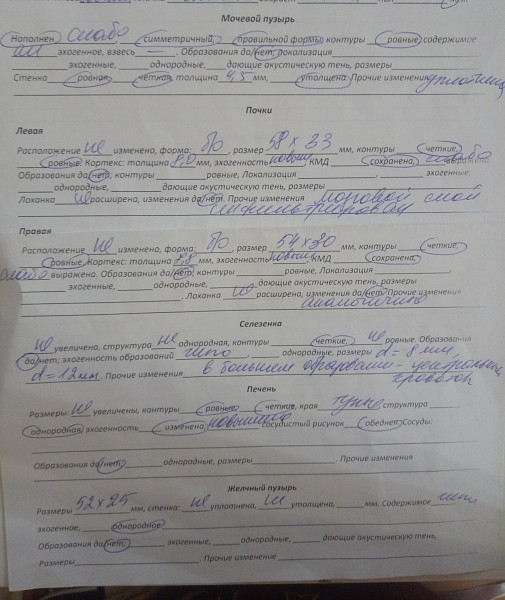 Мочевой пузырь
Наполнен слабо, симметричный, правильной формы, контуры ровные, содержимое
ан эхогенное, взвесь —. Образования да/нет, локализация
эхогенные, однородные, дающие акустическую тень, размеры
Стенка ровная, четкая, толщина 4,5 мм, утолщена. Прочие изменения
Почки
Левая
Расположение не изменено, форма: б/о, размер 58 х 33 мм, контуры четкие,
ровные. Кортекс: толщина 8,0 мм, эхогенность повыш, КМД сохранена, слабо выражена
Образования да/нет, контуры ровные, Локализация, эхогенные,
однородные, дающие акустическую тень, размеры
Лоханка не расширена, изменения да/нет. Прочие изменения мозговой слой
Правая
Расположение не изменено, форма: б/о, размер 54 х 30 мм, контуры четкие,
ровные. Кортекс: толщина 8,8 мм, эхогенность повыш, КМД сохранена,
слабо выражено. Образования да/нет, контуры ровные, Локализация
эхогенные, однородные, дающие акустическую тень, размеры
. Лоханка не расширена, изменения да/нет. Прочие изменения
аналогично
Селезенка
не увеличена, структура не однородная, контуры четкие, не ровные. Образования
да/нет, эхогенность образований гипо, однородные, размеры d = 8 мм,
d = 12 мм. Прочие изменения в большем образовании - центральный
кровоток
Печень
Размеры: не увеличены, контуры ровные, четкие, края тупые структура
однородная, эхогенность изменена, повышена сосудистый рисунок обеднен. Сосуды:
Образования да/нет, однородные, размеры. Прочие изменения
Желчный пузырь
Размеры 52 х 25 мм, стенка: не уплотнена, не утолщена, мм. Содержимое
эхогенное, однородное
Образования да/нет, эхогенные, однородные, дающие акустическую тень,
Размеры. Прочие изменение